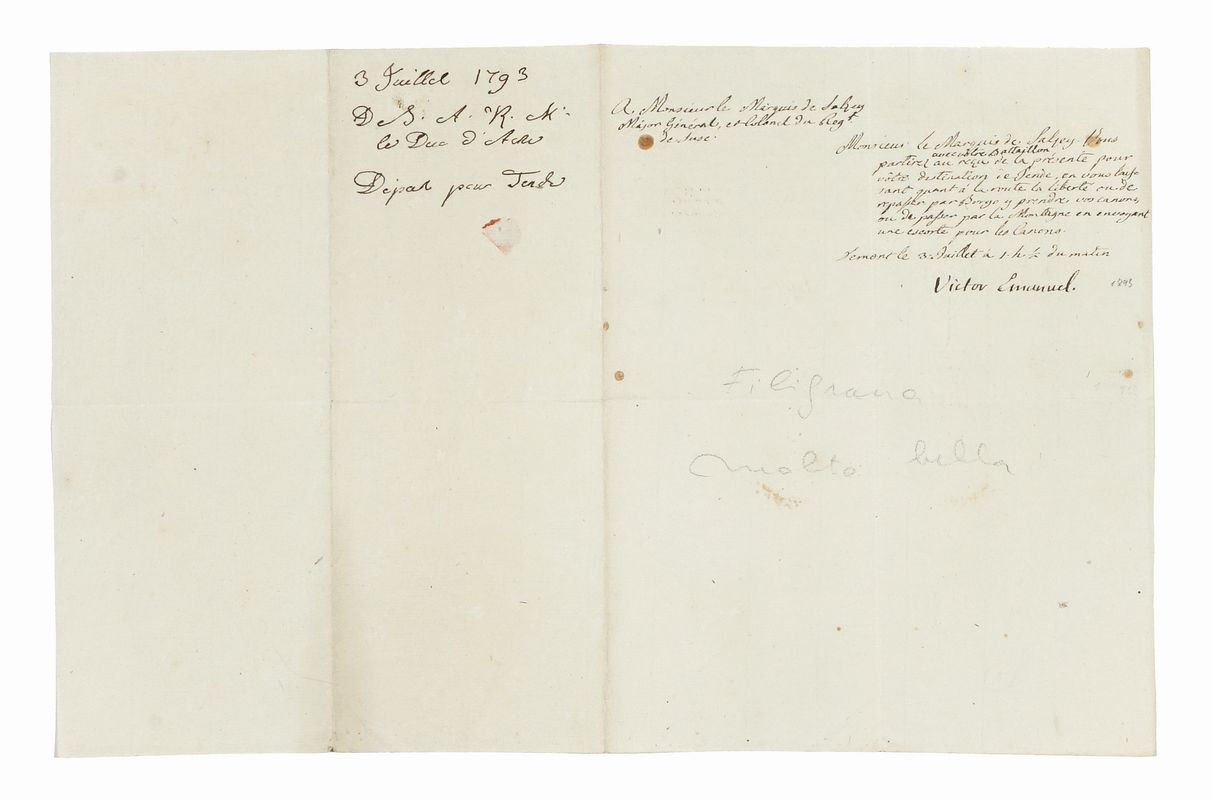 3 Juillet 1793
De S. A. R. Mr.
le Duc d'Aoste
Départ pour Tende
A Monsieur le Marquis de Salzey
Major Général, et Colonel du Regt.
de Suse.
Monsieur le Marquis de Salzey. Vous
avec vôtre Battaillon
partirez au reçu de la présente pour
vôtre destination de Tende, en vous laiss-
sant quant à la route la liberté ou de
repasser par Borgo y prendre vos canons,
ou de passer par la Montagne en envoyant
une escorte pour les Canons.
Demont le 3. Juillet à 1 h ½ du matin
Victor Emanuel.
1793
Filigrana
molto bella